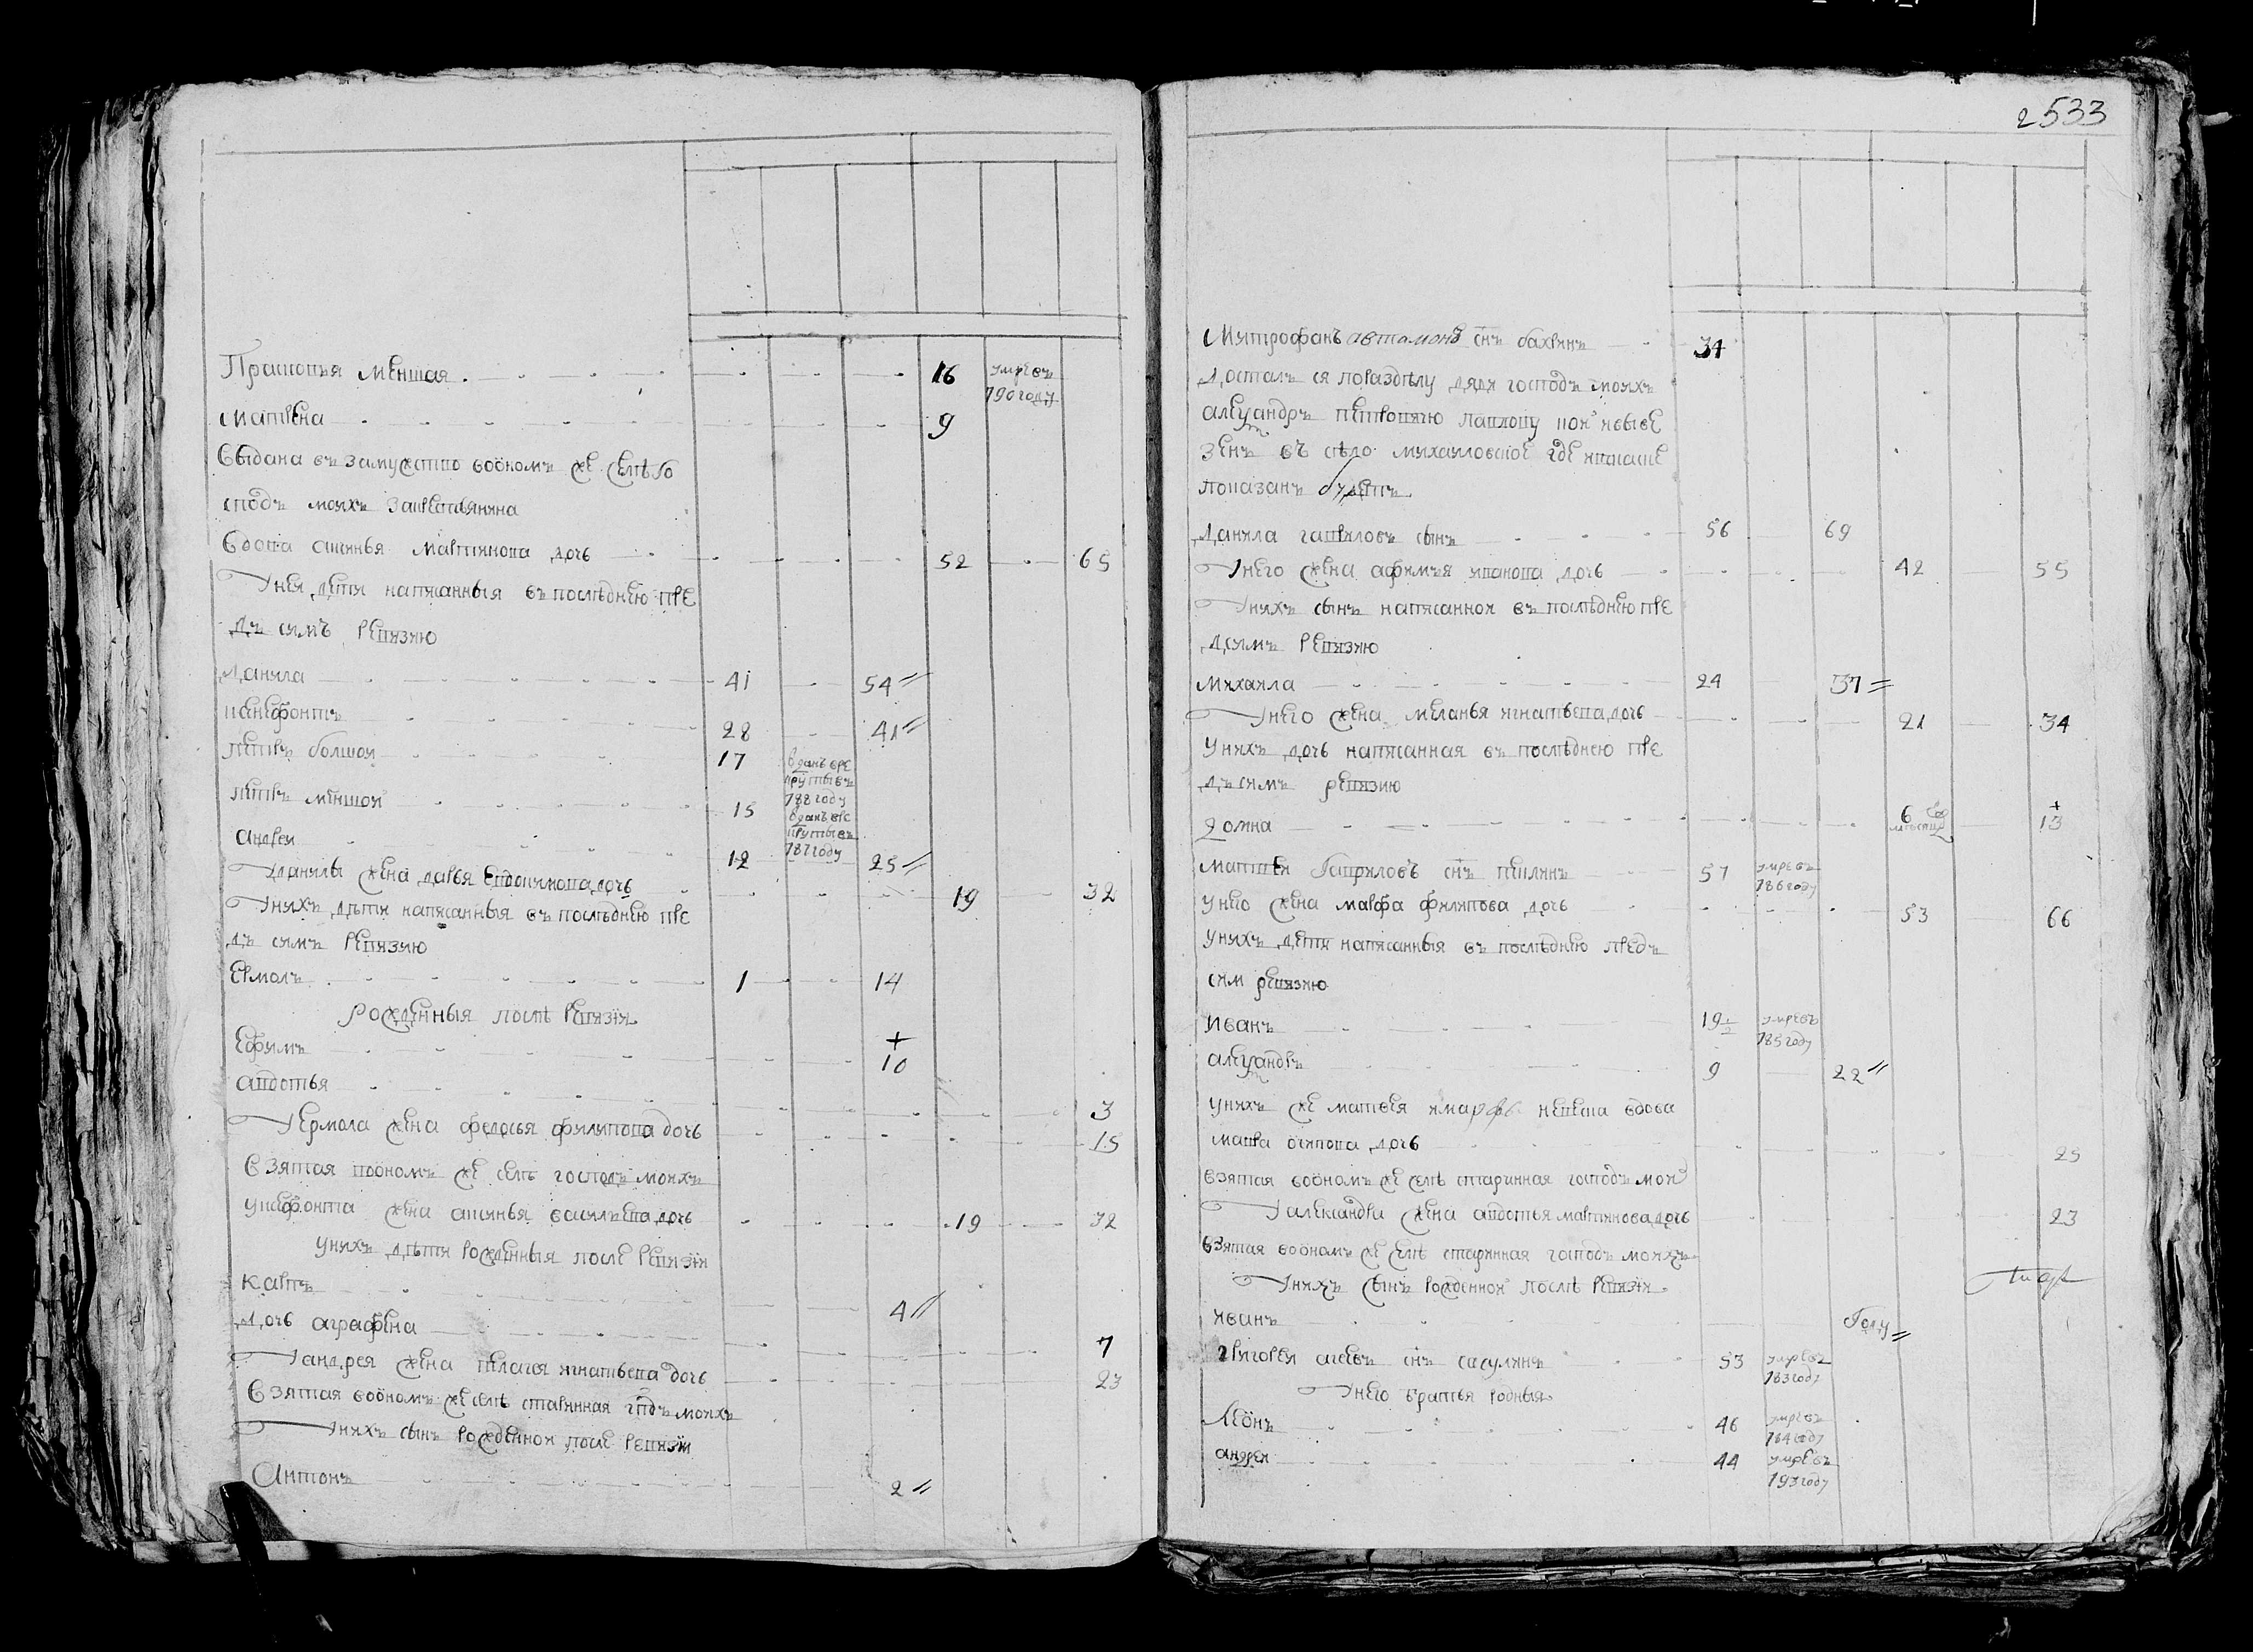 Прасковья меншая 16 умре въ 790 году
матрена 9
выдана въ замужство воономъ же селе го
сподъ моихъ за крестьянина
вдова аксинья мартинова дочь 52 65
У нея дети написанныя въ последнюю пре
дъ симъ ревизию
данила 41 54
ксенефонтъ 28 41
петръ болшой 17 отданъ в ре круты въ 788 году
петръ меншой 15 отданъ в ре круты въ 787 году
андреи 12 25
У данилы жена дарья евдокимова дочь 19 32
У нихъ дети написанныя въ последнюю пре
дъ симъ ревизию
ермолъ 1 14
рожденныя после ревизии
ефимъ + 10
авдотья 3
У ермола жена федосья филипова дочь 15
взятая воономъ же селе господъ моихъ
У ксефонта жена аксинья васильева дочь 19 32
У нихъ дети рожденныя после ревизии
карпъ 4
дочь аграфена 7
У андрея жена пелагея игнатьева дочь 23
взятая воономъ же селе старинная гпдъ моихъ
У нихъ сынъ рожденной после ревизии
Антонъ 2
2533
Митрофанъ автамоновъ снъ бахтинъ 34
достался поразделу дяди господъ моихъ
александръ петровичю павлову кой и вывe
зенъ въ село михаиловское где и писаше
показанъ будетъ
данила гавриловъ сынъ 56 69
У него жена афимья иванова дочь 42 55
У нихъ сынъ написанной въ последнюю пре
дсимъ ревизию
михаила 24 37
У него жена меланья игнатьева дочь 21 34
У нихъ дочь написанная въ последнею пре
дъ симъ ревизию
домна 6 + 13
матвей гавриловъ снъ 57 умре въ 786 году
У него жена марфа филипова дочь 53 66
У нихъ дети написанныя въ последнюю предъ
сим ревизию
иванъ 19 1/2 умре въ 785 году
александръ 9 22
У нихъ же матвея и марфы невеска вдова
мавра осипова дочь 25
взятая воономъ же селе старинная господъ мои
У александра жена авдотья мартинова дочь 23
взятая воономъ же селе старинная господъ моихъ
У нихъ сынъ рожденной после ревизии
иванъ году
григореи снъ 53 умре въ 783 году
У него братья родныя
Леонъ 46 умре въ 784 году
андреи 44 умре въ 793 году